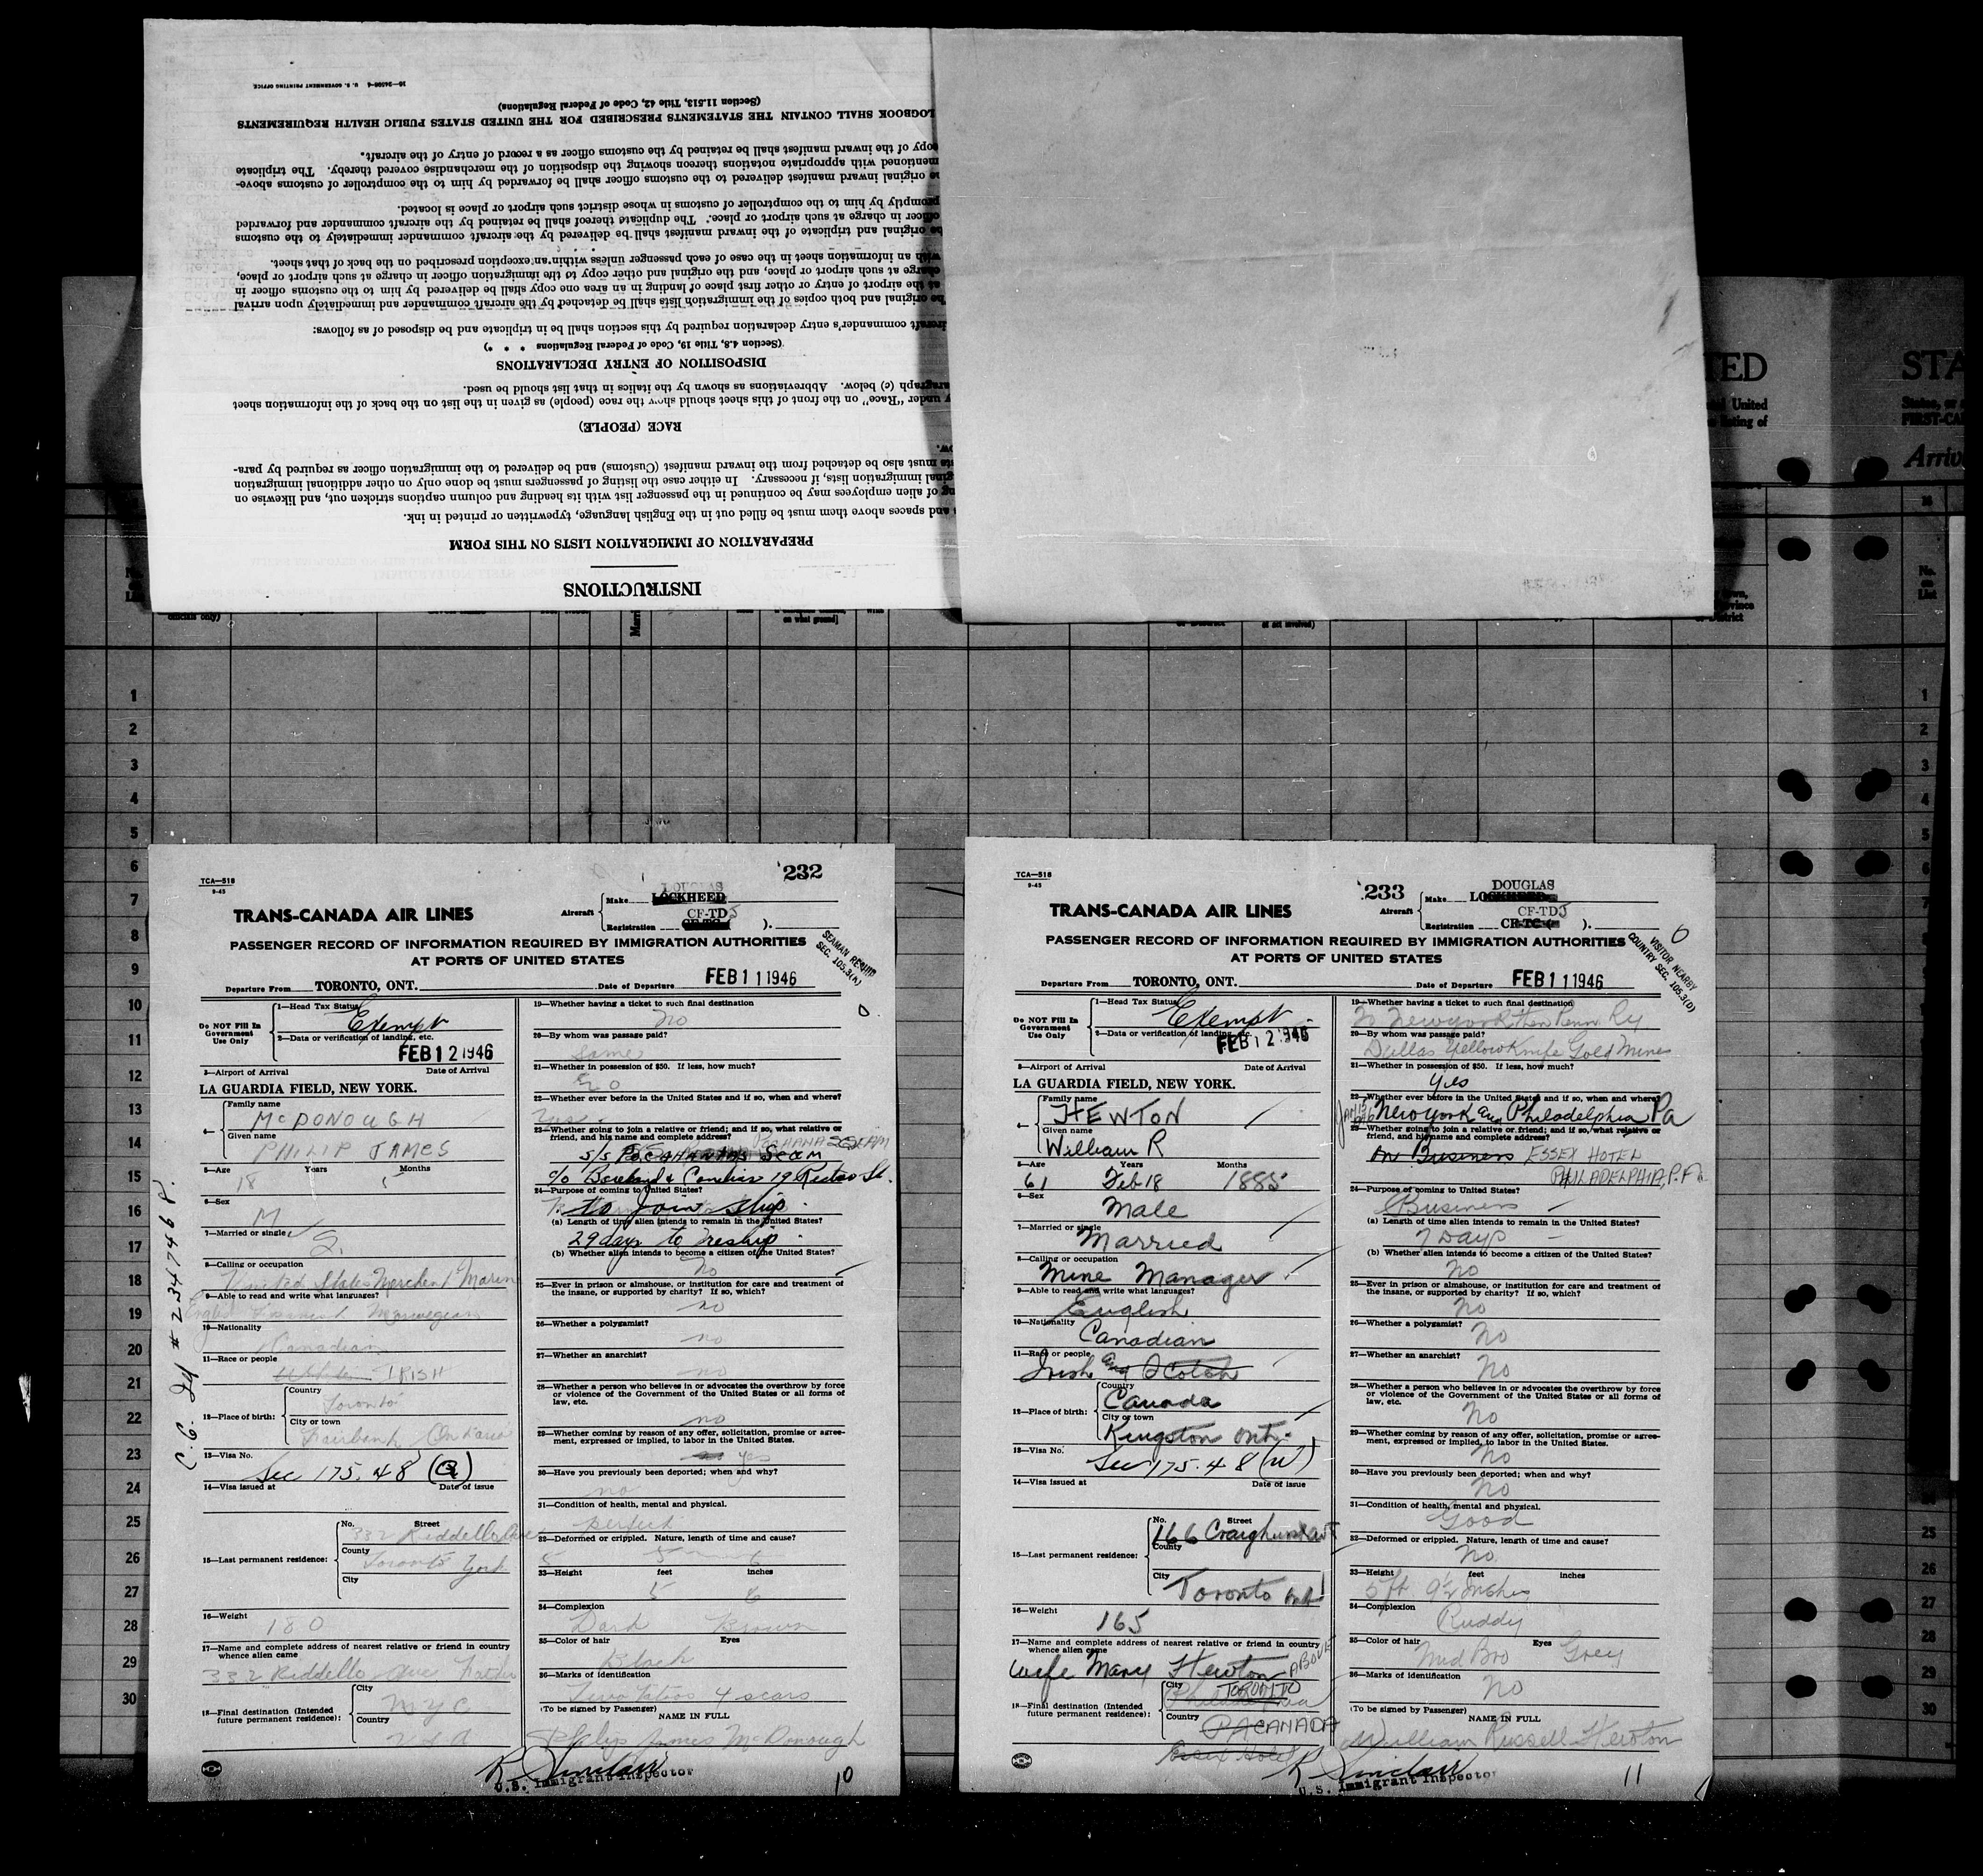 INSTRUCTIONS
PREPARATION OF IMMIGRATION LISTS ON THIS FORM
and spaces above them must be filled out in the English language, typewritten or printed in ink.
of alien employees may be continued in the passenger list with its heading and column captions stricken out, and likewise on
immigration lists, if necessary. In either case the listing of passengers must be done only on other additional immigration
must also be detached from the inward manifest (Customs) and be delivered to the immigration officer as required by para-
RACE (PEOPLE)
under "Race" on the front of this sheet should show the race (people) as given in the list on the back of the information sheet
(c) below. Abbreviations as shown by the italics in that list should be used.
DISPOSITION OF ENTRY DECLARATIONS
(Section 4.8, Title 19, Code of Federal Regulations * * *)
commander's entry declaration required by this section shall be in triplicate and be disposed of as follows:
original and both copies of the immigration lists shall be detached by the aircraft commander and immediately upon arrival
at the airport of entry or other first place of landing in an area one copy shall be delivered by him to the customs officer in
charge at such airport or place, and the original and other copy to the immigration officer in charge at such airport or place,
with an information sheet in the case of each passenger unless within an exception prescribed on the back of that sheet.
original and triplicate of the inward manifest shall be delivered by the aircraft commander immediately to the customs
officer in charge at such airport or place. The duplicate thereof shall be retained by the aircraft commander and forwarded
promptly by him to the comptroller of customs in whose district such airport or place is located.
original inward manifest delivered to the customs officer shall be forwarded by him to the comptroller of customs above-
mentioned with appropriate notations thereon showing the disposition of the merchandise covered thereby. The triplicate
copy of the inward manifest shall be retained by the customs officer as a record of entry of the aircraft.
LOGBOOK SHALL CONTAIN THE STATEMENTS PRESCRIBED FOR THE UNITED STATES PUBLIC HEALTH REQUIREMENTS
(Section 11.513, Title 42, Code of Federal Regulations)
U. S. GOVERNMENT PRINTING OFFICE
TED
United
STA
FIRST-CA
No.
on
List
officials only)
on what ground]
1
2
3
4
5
6
7
8
9
10
11
12
13
14
15
16
17
18
19
20
21
22
23
24
25
26
27
28
29
30
TCA—518
9-43
232
TRANS-CANADA AIR LINES
Aircraft
Make DOUGLAS LOCKHEED
Registration CF-TDJ CF-TC- ( ).
PASSENGER RECORD OF INFORMATION REQUIRED BY IMMIGRATION AUTHORITIES
AT PORTS OF UNITED STATES
SEAMAN
SEC. 105.3(A)
Departure From TORONTO, ONT. Date of Departure FEB 11 1946
Do NOT Fill In
Government
Use Only
1—Head Tax Status
Exempt
2—Data or verification of landing, etc.
FEB 12 1946
3—Airport of Arrival Date of Arrival
LA GUARDIA FIELD, NEW YORK.
4—
Family name
McDONOUGH
Given name
PHILIP JAMES
5—Age Years Months
18 5
6—Sex
M
7—Married or single
S.
8—Calling or occupation
United States Merchent Marine
9—Able to read and write what languages?
English Norwegian
10—Nationality
Canadian
11—Race or people
White IRISH
12—Place of birth:
Country
Toronto
City or town
Fairbank Ontario
13—Visa No.
Sec 175.48 (Q)
14—Visa issued at Date of issue
15—Last permanent residence:
No. Street
332 Riddello Ave
County
Toronto York
City
16—Weight
180
17—Name and complete address of nearest relative or friend in country
whence alien came
332 Riddello Ave Father
18—Final destination (Intended
future permanent residence):
City
NYC
Country
USA
19—Whether having a ticket to such final destination
no
20—By whom was passage paid?
Same
21—Whether in possession of $50. If less, how much?
22—Whether ever before in the United States and if so, when and where?
23—Whether going to join a relative or friend; and if so, what relative or
friend, and his name and complete address?
S/S Pocahontas Seam
c/o
24—Purpose of coming to United States?
to join ship
(a) Length of time alien intends to remain in the United States?
29 days to reship
(b) Whether alien intends to become a citizen of the United States?
No
25—Ever in prison or almshouse, or institution for care and treatment of
the insane, or supported by charity? If so, which?
no
26—Whether a polygamist?
no
27—Whether an anarchist?
no
28—Whether a person who believes in or advocates the overthrow by force
or violence of the Government of the United States or all forms of
law, etc.
no
29—Whether coming by reason of any offer, solicitation, promise or agree-
ment, expressed or implied, to labor in the United States.
yes
30—Have you previously been deported; when and why?
no
31—Condition of health, mental and physical.
perfect
32—Deformed or crippled. Nature, length of time and cause?
33—Height feet inches
5 6
34—Complexion
Dark Brown
35—Color of hair Eyes
Black
36—Marks of identification
4 scars
(To be signed by Passenger) NAME IN FULL
Philip James McDonough
R Sinclair
U.S. Immigrant Inspector
10
TCA—518
9-43
233
TRANS-CANADA AIR LINES
Aircraft
Make DOUGLAS LOCKHEED
Registration CF-TDJ CF-TC- ( ).
PASSENGER RECORD OF INFORMATION REQUIRED BY IMMIGRATION AUTHORITIES
AT PORTS OF UNITED STATES
VISITOR NEARBY
COUNTRY SEC. 105.3(D)
Departure From TORONTO, ONT. Date of Departure FEB 11 1946
Do NOT Fill In
Government
Use Only
1—Head Tax Status
Exempt
2—Data or verification of landing, etc.
FEB 12 1946
3—Airport of Arrival Date of Arrival
LA GUARDIA FIELD, NEW YORK.
4—
Family name
HEWTON
Given name
William R
5—Age Years Months
61 Feb 18 1885
6—Sex
Male
7—Married or single
Married
8—Calling or occupation
Mine Manager
9—Able to read and write what languages?
English
10—Nationality
Canadian
11—Race or people
Irish and Scotch
12—Place of birth:
Country
Canada
City or town
Kingston Ont.
13—Visa No.
Sec 175.48 (W)
14—Visa issued at Date of issue
15—Last permanent residence:
No. Street
166 Craighurst Ave
County
City
Toronto Ont
16—Weight
165
17—Name and complete address of nearest relative or friend in country
whence alien came
Wife Mary Hewton ABOVE
18—Final destination (Intended
future permanent residence):
City
Philadelphia TORONTO
Country
PA CANADA
Essex Hotel
19—Whether having a ticket to such final destination
To New York then Penn Ry
20—By whom was passage paid?
Yellowknife Gold Mines
21—Whether in possession of $50. If less, how much?
Yes
22—Whether ever before in the United States and if so, when and where?
New York and Philadelphia Pa
23—Whether going to join a relative or friend; and if so, what relative or
friend, and his name and complete address?
on Business ESSEX HOTEL
PHILADELPHIA, P.A.
24—Purpose of coming to United States?
Business
(a) Length of time alien intends to remain in the United States?
7 Days
(b) Whether alien intends to become a citizen of the United States?
No
25—Ever in prison or almshouse, or institution for care and treatment of
the insane, or supported by charity? If so, which?
No
26—Whether a polygamist?
No
27—Whether an anarchist?
No
28—Whether a person who believes in or advocates the overthrow by force
or violence of the Government of the United States or all forms of
law, etc.
No
29—Whether coming by reason of any offer, solicitation, promise or agree-
ment, expressed or implied, to labor in the United States.
No
30—Have you previously been deported; when and why?
No
31—Condition of health, mental and physical.
Good
32—Deformed or crippled. Nature, length of time and cause?
No
33—Height feet inches
5 ft 9½ inches
34—Complexion
Ruddy
35—Color of hair Eyes
Med Bro Grey
36—Marks of identification
No
(To be signed by Passenger) NAME IN FULL
William Russell Hewton
R Sinclair
U.S. Immigrant Inspector
11